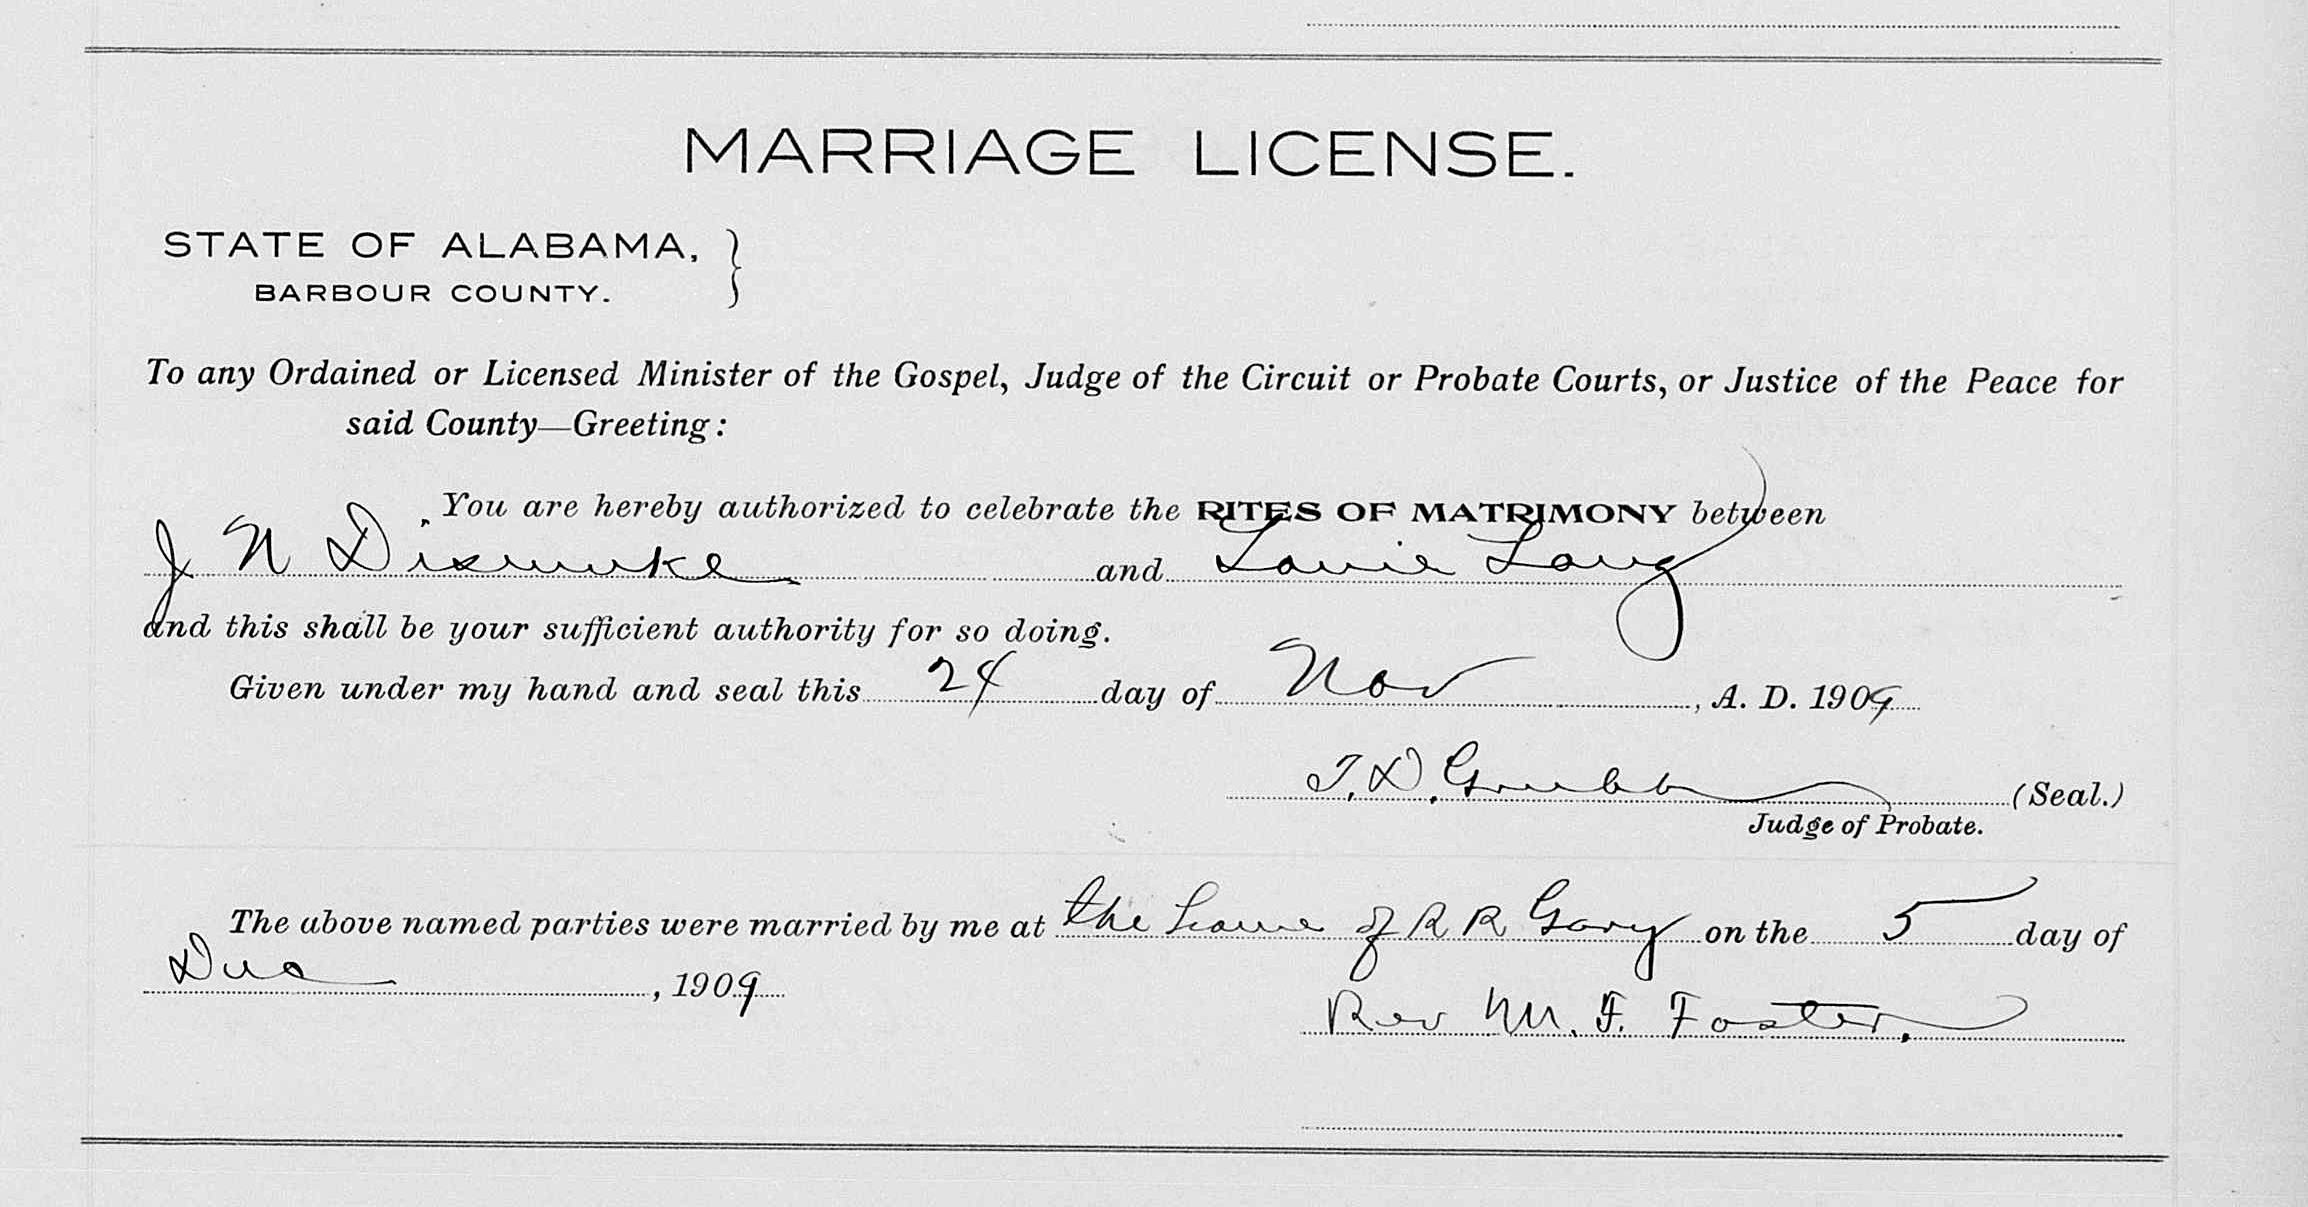 MARRIAGE LICENSE.
STATE OF ALABAMA,
BARBOUR COUNTY.
To any Ordained or Licensed Minister of the Gospel, Judge of the Circuit or Probate Courts, or Justice of the Peace for
said County—Greeting:
You are hereby authorized to celebrate the RITES OF MATRIMONY between
J N Dismuke and Louie Long
and this shall be your sufficient authority for so doing.
Given under my hand and seal this 24 day of Nov, A. D. 1909
T. D. Grubb (Seal.)
Judge of Probate.
The above named parties were married by me at the home of R R Gary on the 5 day of
Dec, 1909
Rev M. F. Foster.